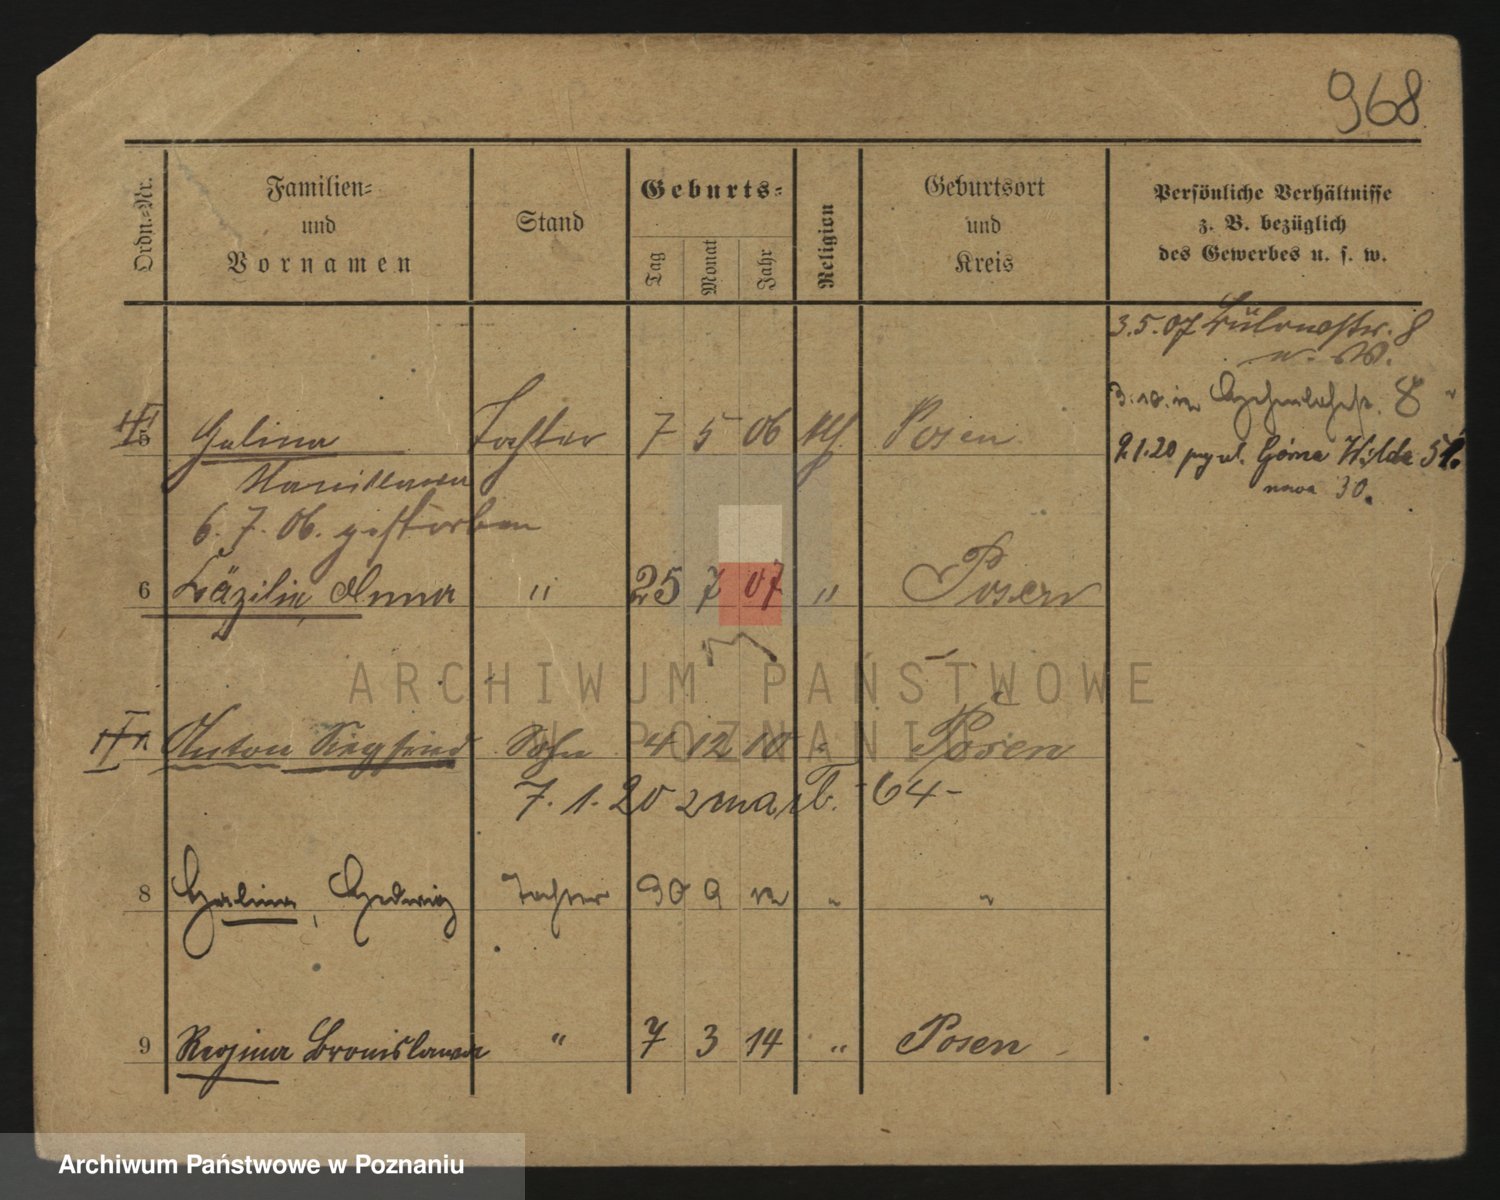 968
Ordn.=Nr.
Familien=
und
Vornamen
Stand
Geburts=
Tag
Monat
Jahr
Religion
Geburtsort
und
Kreis
Persönliche Verhältnisse
z. B. bezüglich
des Gewerbes u. s. w.
3.5.07 8
n. W.
3.10. 8 "
9.1.20 Górna Wilda 51.
nowa 30.
5 Halina Tochter 7 5 06 kth. Posen
Stanislawa
6.7.06. gestorben
6 Zäzilia, Anna " 25 7 07 " Posen
Anton Siegfried Sohn 4 12 10 " Posen
7. 1. 20 zmarł. -64-
8 Halina, Hedwig Tochter 30 9 12 " "
9 Regina Bronislawa " 7 3 14 " Posen
ARCHIWUM PAŃSTWOWE
W POZNANIU
Archiwum Państwowe w Poznaniu